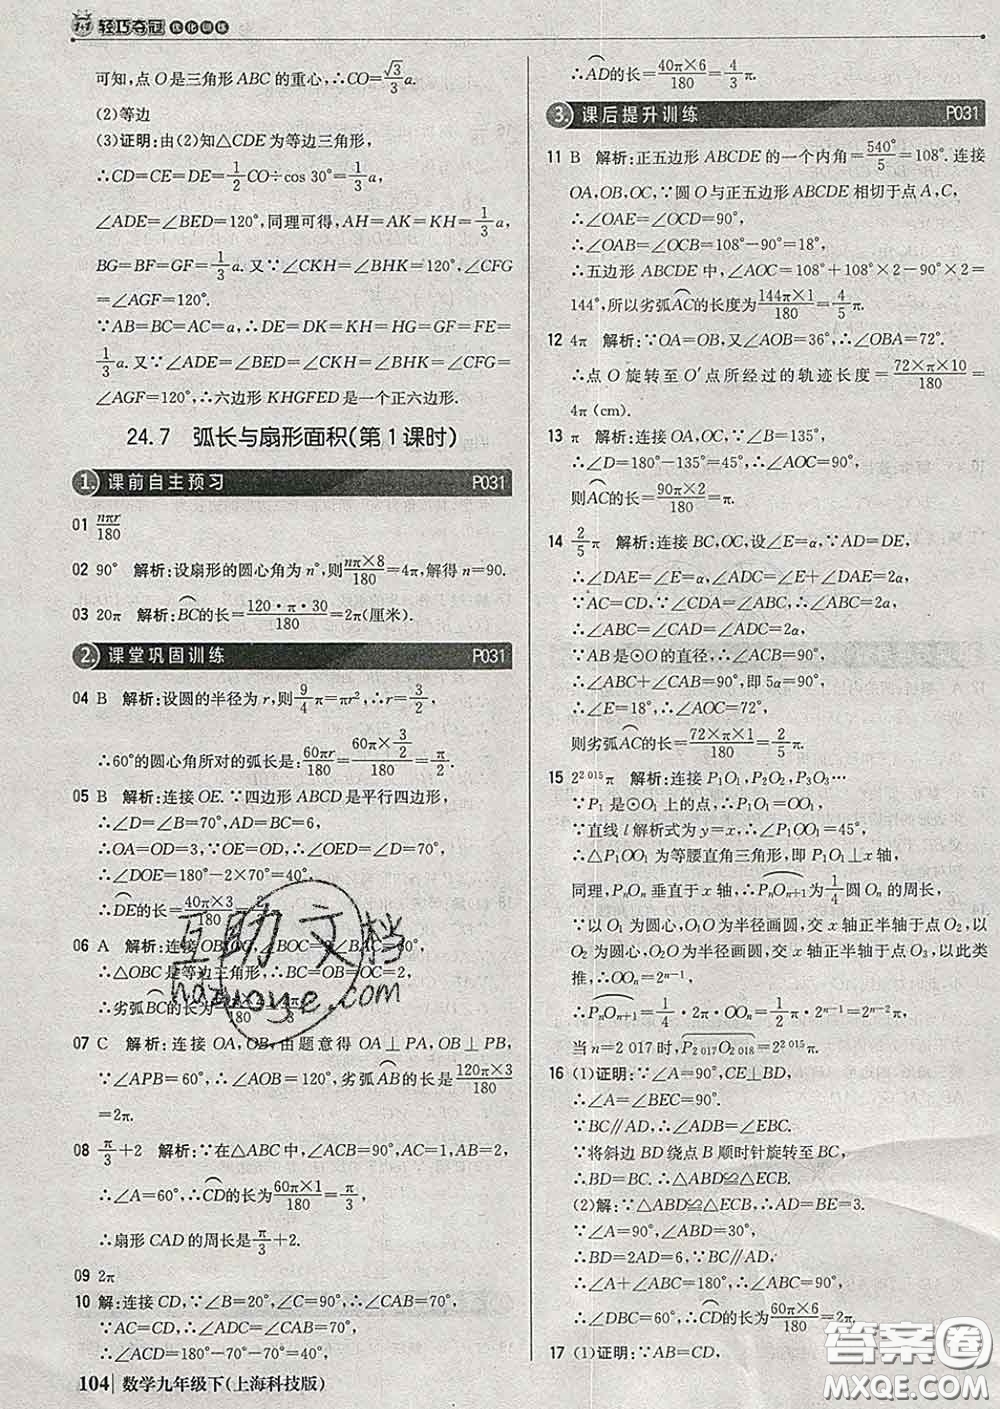 1+1 轻巧夺冠 优化训练
可知,点O是三角形ABC的重心,∴CO=√3/3 a.
(2)等边
(3)证明:由(2)知△CDE为等边三角形,
∴CD=CE=DE=1/2 CO÷cos 30°=1/3 a,
∠ADE=∠BED=120°,同理可得,AH=AK=KH=1/3 a,
BG=BF=GF=1/3 a.又∵∠CKH=∠BHK=120°,∠CFG
=∠AGF=120°.
∵AB=BC=AC=a,∴DE=DK=KH=HG=GF=FE=
1/3 a.又∵∠ADE=∠BED=∠CKH=∠BHK=∠CFG
=∠AGF=120°,∴六边形KHGFED是一个正六边形.
24.7 弧长与扇形面积(第1课时)
1. 课前自主预习 P031
01 nπr/180
02 90° 解析:设扇形的圆心角为n°,则nπ×8/180=4π,解得n=90.
03 20π 解析:BC⌒的长=120·π·30/180=2π(厘米).
2. 课堂巩固训练 P031
04 B 解析:设圆的半径为r,则9/4 π=πr²,∴r=3/2,
∴60°的圆心角所对的弧长是:60πr/180=(60π×3/2)/180=π/2.
05 B 解析:连接OE.∵四边形ABCD是平行四边形,
∴∠D=∠B=70°,AD=BC=6,
∴OA=OD=3,∵OE=OD,∴∠OED=∠D=70°,
∴∠DOE=180°-2×70°=40°,
∴DE⌒的长=40π×3/180=
06 A 解析:连接OB,OC,∠BOC=∠BAC=60°,
∴△OBC是等边三角形,
∴劣弧BC⌒的长为
07 C 解析:连接OA,OB,由题意得OA⊥PA,OB⊥PB,
∵∠APB=60°,∴∠AOB=120°,劣弧AB⌒的长是120π×3/180
=2π.
08 π/3+2 解析:∵在△ABC中,∠ACB=90°,AC=1,AB=2,
∴∠A=60°,∴CD⌒的长为60π×1/180=π/3,
∴扇形CAD的周长是π/3+2.
09 2π
10 解:连接CD,∵∠B=20°,∠C=90°,∴∠CAB=70°,
∵AC=CD,∴∠ADC=∠CAB=70°,
∴∠ACD=180°-70°-70°=40°,
104 数学九年级下(上海科技版)
∴AD⌒的长=40π×6/180=4/3 π.
3. 课后提升训练 P031
11 B 解析:正五边形ABCDE的一个内角=540°/5=108°.连接
OA,OB,OC,∵圆O与正五边形ABCDE相切于点A,C,
∴∠OAE=∠OCD=90°,
∴∠OAB=∠OCB=108°-90°=18°,
∴五边形ABCDE中,∠AOC=108°+108°-90°-90°×2=
144°,所以劣弧AC⌒的长度为144π×1/180=4/5 π.
12 4π 解析:∵OA=OB,又∠AOB=36°,∴∠OBA=72°.
∴点O旋转至O′点所经过的轨迹长度=72×π×10/180=
4π(cm).
13 π 解析:连接OA,OC,∵∠B=135°,
∴∠D=180°-135°=45°,∴∠AOC=90°,
则AC⌒的长=90π×2/180=π.
14 2/5 π 解析:连接BC,OC,设∠E=α,∵AD=DE,
∴∠DAE=∠E=α,∴∠ADC=∠E+∠DAE=2α,
∵AC=CD,∴∠CDA=∠ABC,∴∠ABC=2α,
∴∠ABC=∠CAD=∠ADC=2α,
∵AB是⊙O的直径,∴∠ACB=90°,
∴∠ABC+∠CAB=90°,即5α=90°,
∴∠E=18°,∴∠AOC=72°,
则劣弧AC⌒的长=72×π×1/180=2/5 π.
15 2²⁰¹⁵π 解析:连接P₁O₁,P₂O₂,P₃O₃…
∵P₁是⊙O₁上的点,∴P₁O₁=OO₁,
∵直线l解析式为y=x,∴∠P₁OO₁=45°,
∴△P₁OO₁为等腰直角三角形,即P₁O₁⊥x轴,
同理,PₙOₙ垂直于x轴,∴PₙOₙ₊₁⌒为1/4圆Oₙ的周长,
∵以O₁为圆心,O₁O为半径画圆,交x轴正半轴于点O₂,以
O₂为圆心,O₂O为半径画圆,交x轴正半轴于点O₃,以此类
推,∴OOₙ=2ⁿ⁻¹,
∴PₙOₙ₊₁⌒=1/4·2π·OOₙ=1/2π·2ⁿ⁻¹=2ⁿ⁻²π,
当n=2 017时,P₂₀₁₇O₂₀₁₈⌒=2²⁰¹⁵π.
16 (1)证明:∵∠A=90°,CE⊥BD,
∴∠A=∠BEC=90°.
∵BC∥AD,∴∠ADB=∠EBC.
∵将斜边BD绕点B顺时针旋转至BC,
∴BD=BC.∴△ABD≌△ECB.
(2)解:∵△ABD≌△ECB,∴AD=BE=3.
∵∠A=90°,∠ABD=30°,
∴BD=2AD=6,∵BC∥AD,
∴∠A+∠ABC=180°,∴∠ABC=90°,
∴∠DBC=60°,∴CD⌒的长=60π×6/180=2π.
17 (1)证明:∵AB=CD,
互助文档
hdzuoye.com
答案圈
MXQE.COM